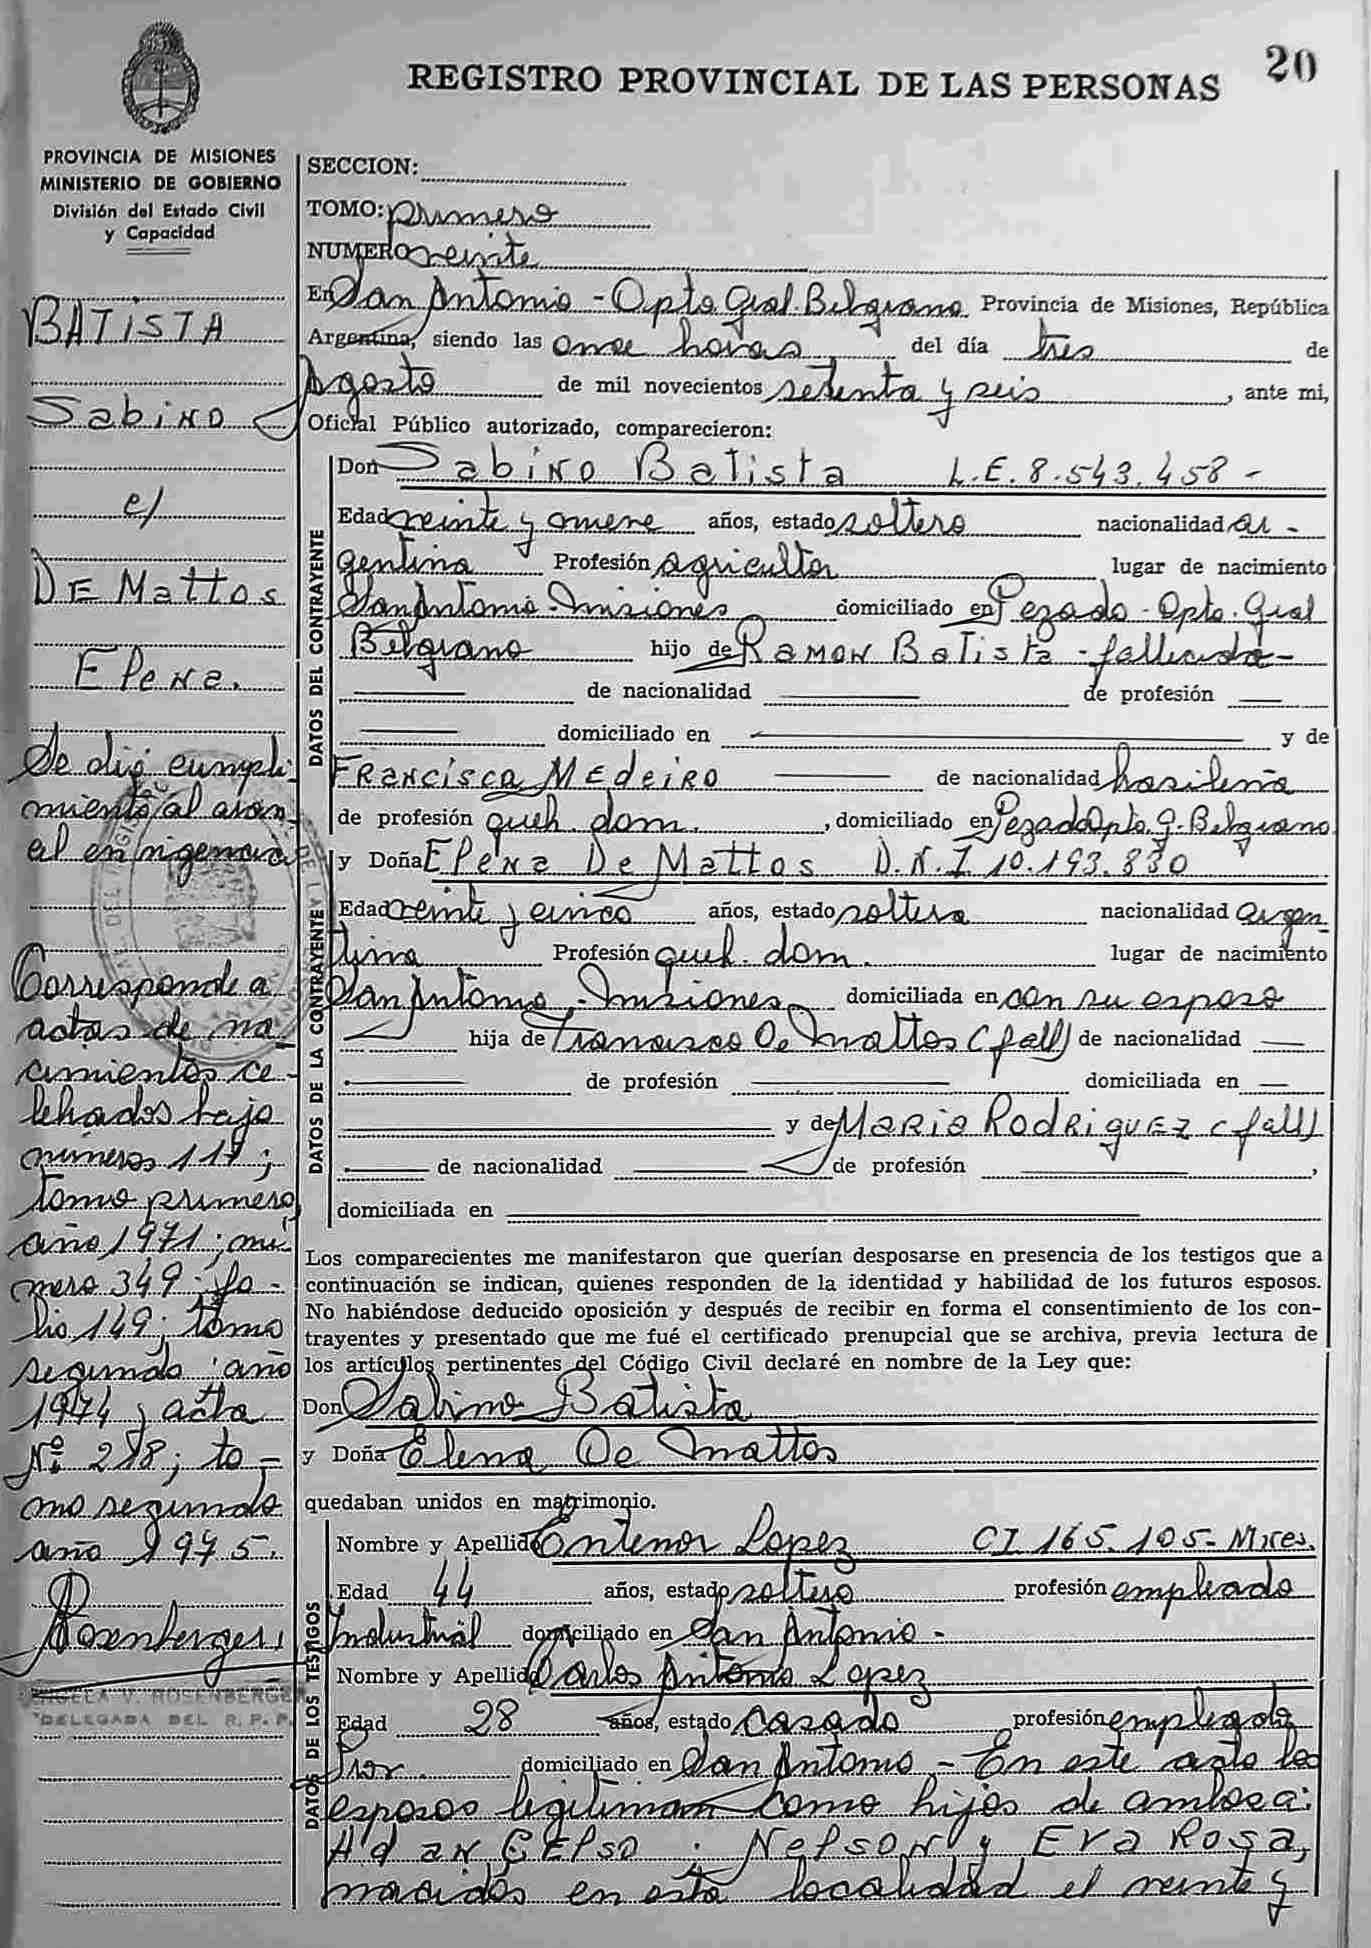 20
REGISTRO PROVINCIAL DE LAS PERSONAS
PROVINCIA DE MISIONES
MINISTERIO DE GOBIERNO
División del Estado Civil
y Capacidad
BATISTA
Sabino
c/
DE Mattos
Elena.
Se dió cumpli-
miento al aran-
cel en vigencia
Corresponde a
actas de na-
cimientos ce-
lebrados bajo
números 117;
tomo primero
año 1971; nú-
mero 349; fo-
lio 149; tomo
segundo año
1974, acta
Nº 298; to-
mo segundo
año 1975.
Rosenberger
ANGELA V. ROSENBERGER
DELEGADA DEL R. P. P.
SECCION:
TOMO: primero
NUMERO veinte
En San Antonio - Dpto Gral. Belgrano Provincia de Misiones, República
Argentina, siendo las once horas del día tres de
Agosto de mil novecientos setenta y seis, ante mi,
Oficial Público autorizado, comparecieron:
DATOS DEL CONTRAYENTE
Don Sabino Batista L.E. 8.543.458 -
Edad veinte y nueve años, estado soltero nacionalidad ar-
gentina Profesión agricultor lugar de nacimiento
San Antonio - Misiones domiciliado en Pozado - Dpto. Gral
Belgrano hijo de Ramon Batista - fallecido -
de nacionalidad de profesión
domiciliado en y de
Francisca Medeiro de nacionalidad brasileña
de profesión queh. dom., domiciliado en Pozado Dpto. G. Belgrano
DATOS DE LA CONTRAYENTE
y Doña Elena De Mattos D.N.I. 10.193.830
Edad veinte y cinco años, estado soltera nacionalidad argen
tina Profesión queh. dom. lugar de nacimiento
San Antonio - Misiones domiciliada en con su esposo
hija de Francisco De Mattos (fall) de nacionalidad
de profesión domiciliada en
y de Maria Rodriguez (fall)
de nacionalidad de profesión ,
domiciliada en
Los comparecientes me manifestaron que querían desposarse en presencia de los testigos que a
continuación se indican, quienes responden de la identidad y habilidad de los futuros esposos.
No habiéndose deducido oposición y después de recibir en forma el consentimiento de los con-
trayentes y presentado que me fué el certificado prenupcial que se archiva, previa lectura de
los artículos pertinentes del Código Civil declaré en nombre de la Ley que:
Don Sabino Batista
y Doña Elena De Mattos
quedaban unidos en matrimonio.
DATOS DE LOS TESTIGOS
Nombre y Apellido Entenor Lopez CI. 165.105 - Mnes.
Edad 44 años, estado soltero profesión empleado
Industrial domiciliado en San Antonio -
Nombre y Apellido Carlos Antonio Lopez
Edad 28 años, estado casado profesión empleado
domiciliado en San Antonio - En este acto los
esposos legitiman como hijos de ambos a:
Adan Celso; Nelson y Eva Rosa,
nacidos en esta localidad el veinte y